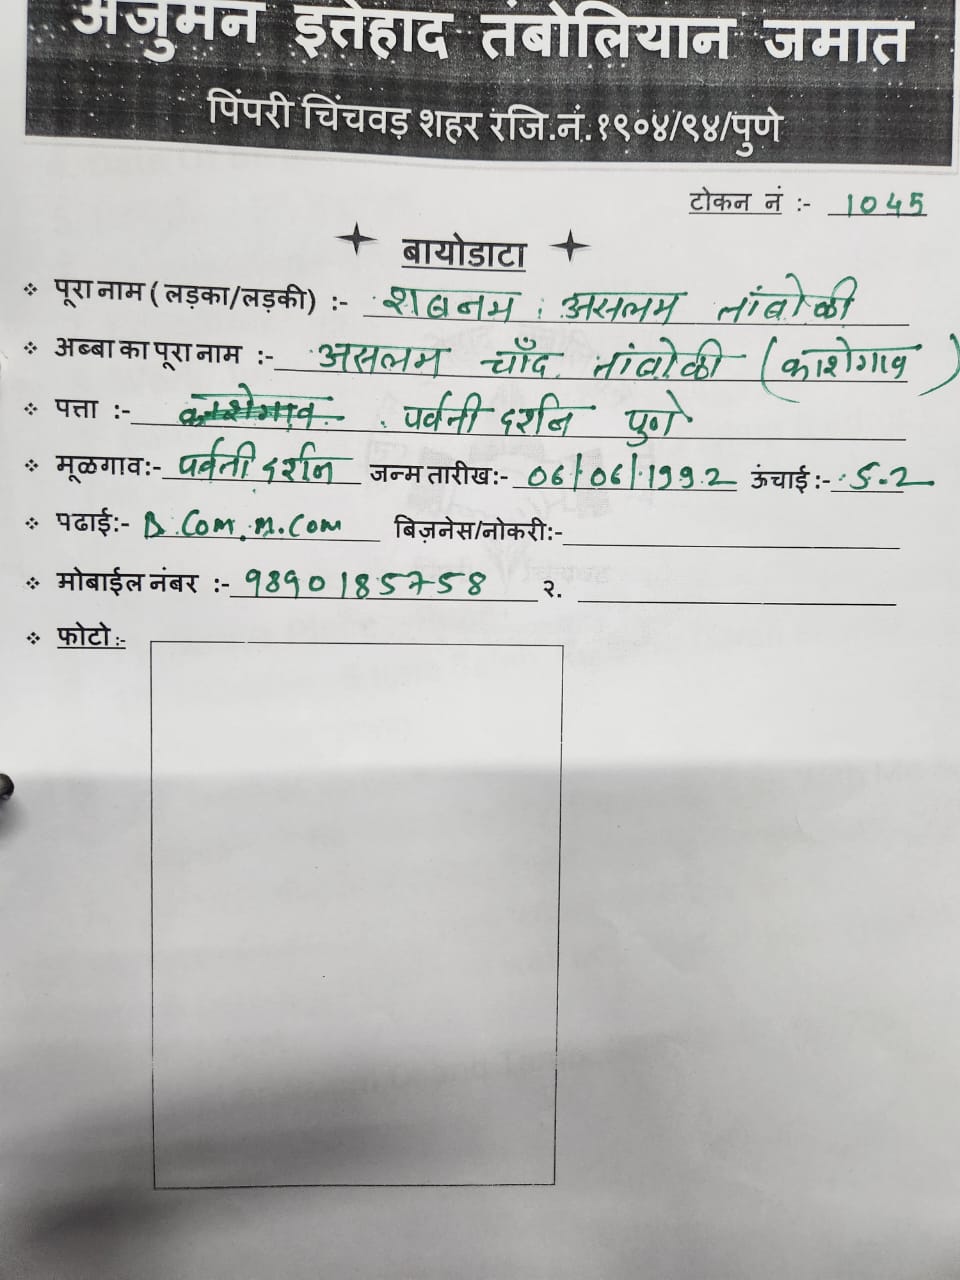 अंजुमन इत्तेहाद तंबोलियान जमात
पिंपरी चिंचवड़ शहर रजि.नं.१९०४/९४/पुणे
टोकन नं :- 1045
बायोडाटा
पूरा नाम ( लड़का/लड़की) :- शबनम असलम तांबोळी
अब्बा का पूरा नाम :- असलम चाँद तांबोळी (काशेगाव)
पत्ता :- काशेगाव पर्वनी दर्शन पुणे
मूळगाव:- पर्वती दर्शन जन्म तारीख:- 06/06/1992 ऊंचाई :- 5.2
पढाई:- B.Com. M.Com बिज़नेस/नोकरी:-
मोबाईल नंबर :- 9890185758 २.
फोटो :-